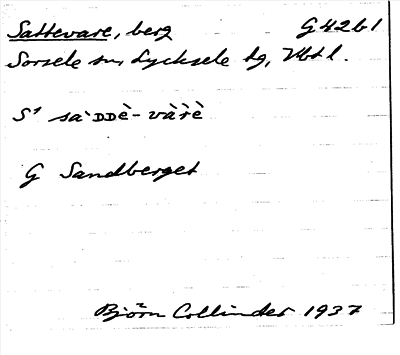 Sattevare, berg G42b1
Sorsele sn, Lycksele lg, Vbtl.
S¹ sa`ᴅᴅè-và̀rè
G Sandberget
Björn Collinder 1937